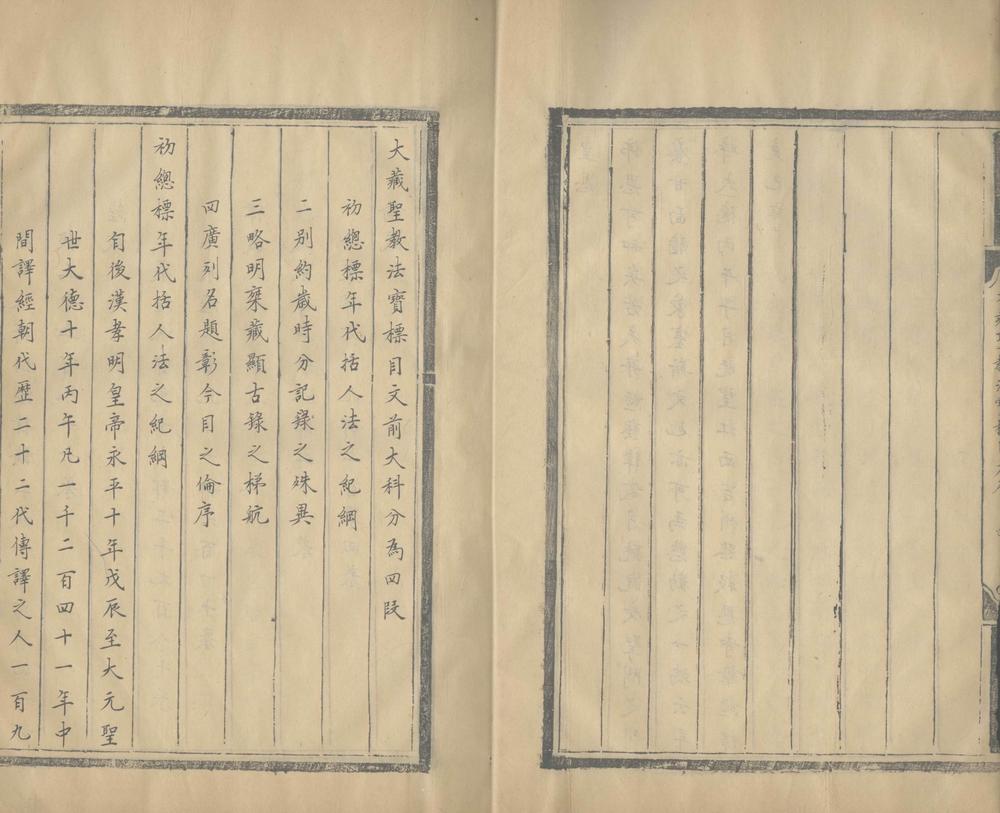 大藏聖教法寶標目文前大科分為四段
初總標年代括人法之紀綱
二别約歲時分記錄之殊異
三略明乘藏顯古錄之梯航
四廣列名題彰今目之倫序
初總標年代括人法之紀綱
自後漢孝明皇帝永平十年戊辰至大元聖
世大德十年丙午凡一千二百四十一年中
間譯經朝代歷二十二代傳譯之人一百九